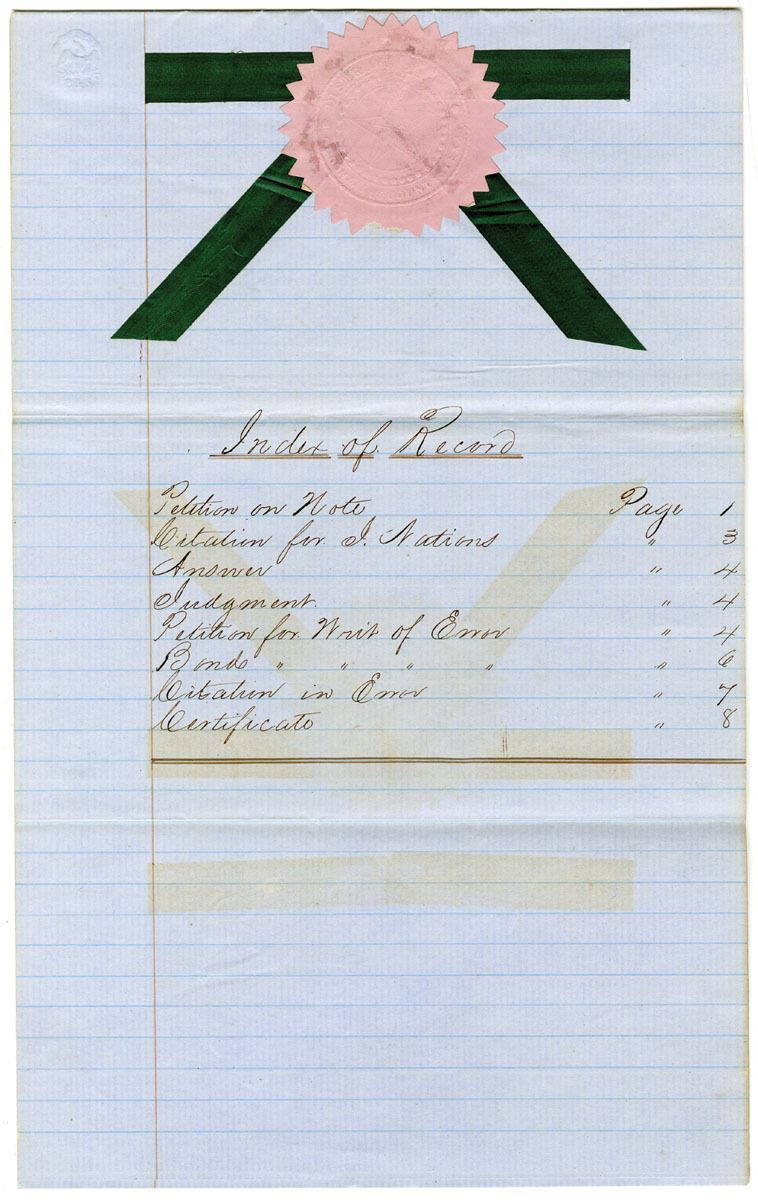 Index of Record
Petition on Note Page 1
Citation for I. Nations " 3
Answer " 4
Judgment. " 4
Petition for Writ of Error " 4
Bond " " " " " 6
Citation in Error " 7
Certificate " 8